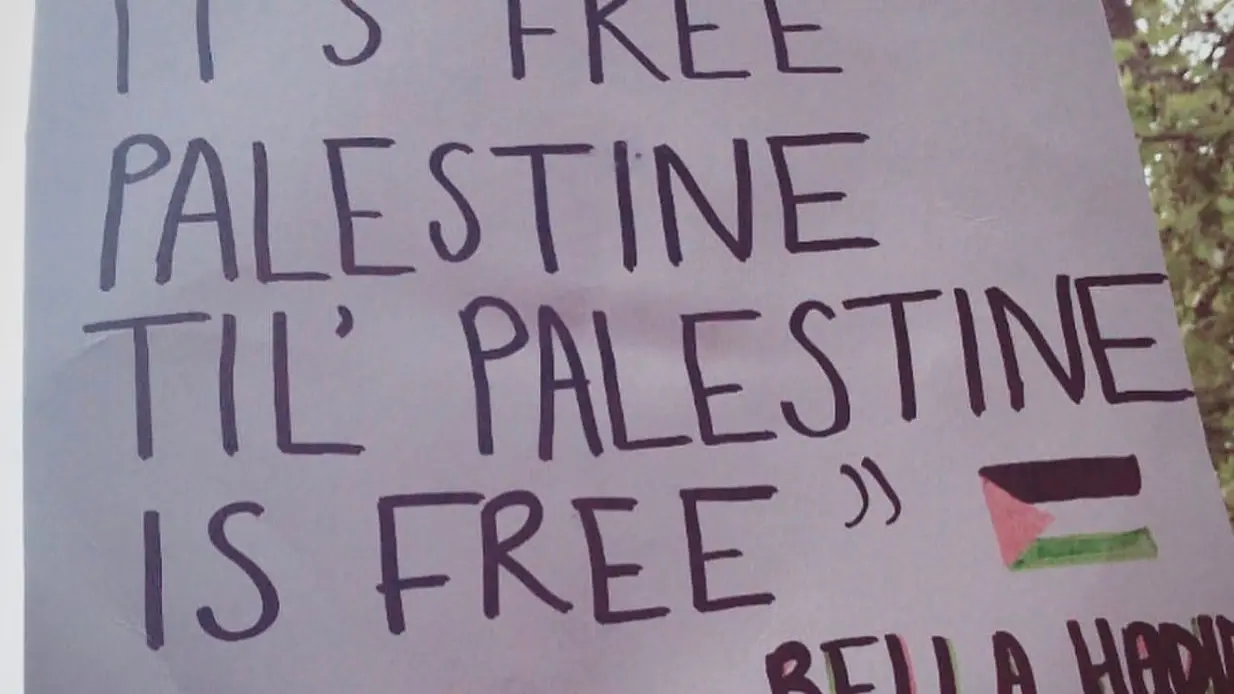 IT'S FREE
PALESTINE
TIL' PALESTINE
IS FREE”
BELLA HADID